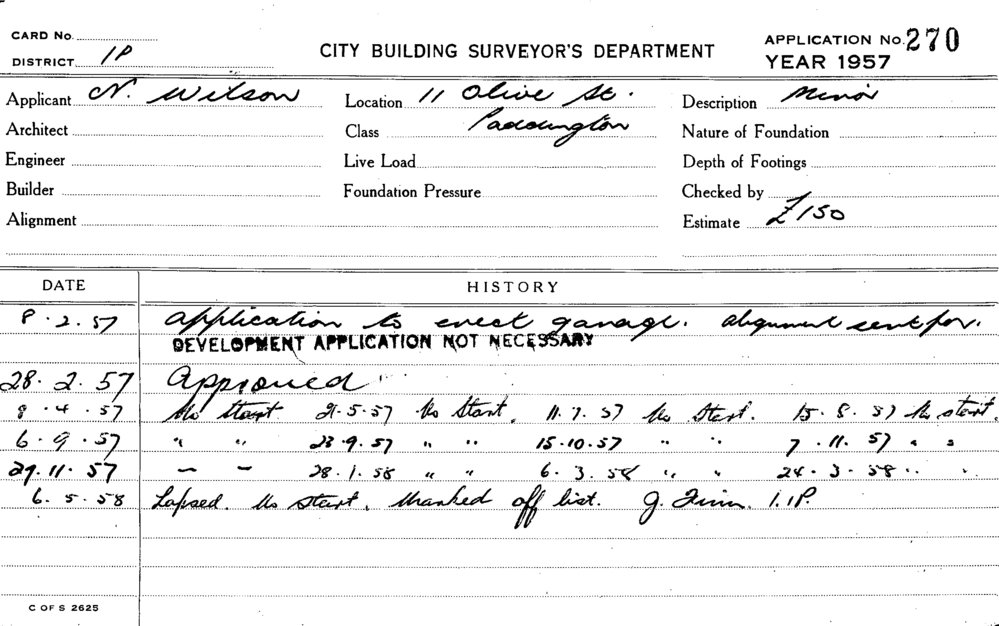 CARD No.
DISTRICT 1P
CITY BUILDING SURVEYOR'S DEPARTMENT
APPLICATION No. 270
YEAR 1957
Applicant N. Wilson
Location 11 Olive St.
Description Minor
Architect
Class Paddington
Nature of Foundation
Engineer
Live Load
Depth of Footings
Builder
Foundation Pressure
Checked by
Alignment
Estimate £150
DATE HISTORY
8.2.57 Application to erect garage. Alignment sent for.
DEVELOPMENT APPLICATION NOT NECESSARY
28.2.57 Approved
8.4.57 No Start 21.5.57 No Start. 11.7.57 No Start. 15.8.57 No start.
6.9.57 " " 23.9.57 " " 15.10.57 " " 7.11.57 " "
29.11.57 – – 28.1.58 " " 6.3.58 " " 24.3.58 " "
6.5.58 Lapsed. No start. Marked off list. J. Finn. 1.1P.
C OF S 2625